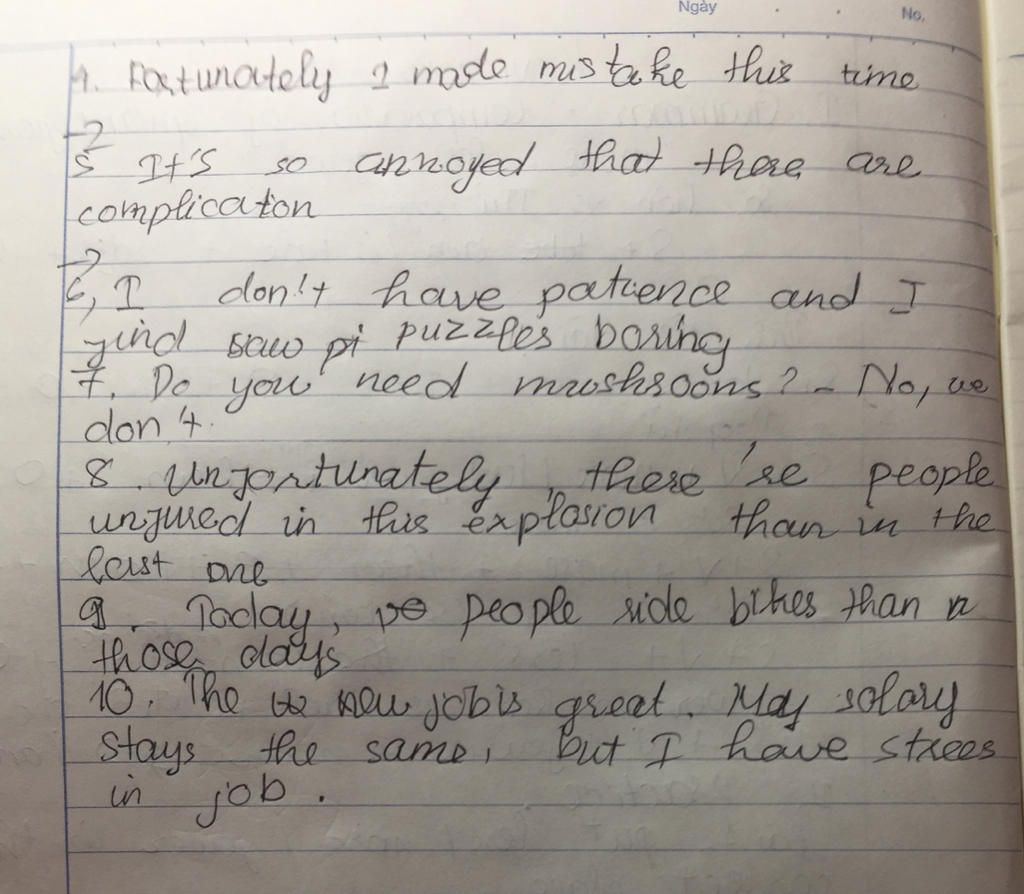 Ngày
No.
4. Fortunately I made mistake this time
→
5 It's so annoyed that there are
complicaton
→
6, I don't have patience and I
find saw pi puzzles boring
7. Do you need mushroons? - No, we
don't.
8. Unfortunately, there're people
unjured in this explosion than in the
last one
9. Today, people ride bikes than in
those days
10. The new job is great. May salary
stays the same, but I have strees
in job.